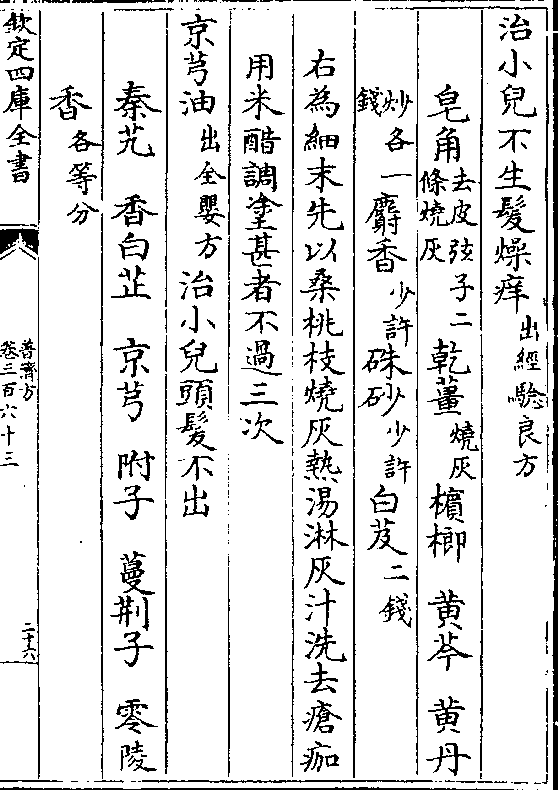 治小兒不生髮燥痒出經驗良方
皂角去皮弦子二條燒灰 乾薑燒灰 檳榔 黄芩 黄丹
炒各一錢麝香少許硃砂少許白芨二錢
右為細末先以桑桃枝燒灰熱湯淋灰汁洗去瘡痂
用米醋調塗甚者不過三次
京芎油出全嬰方治小兒頭髮不出
秦艽 香白芷 京芎 附子 蔓荆子 零陵
香各等分
欽定四庫全書
普濟方
卷三百六十三
二十六